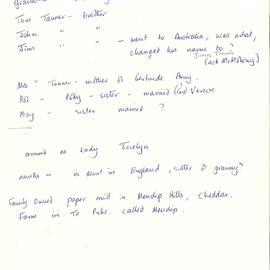 Tom Tanner - brother
John " "
Jim " " - went to Australia, was artist,
changed his name to ?
(ask Mr McAvoy)
Ms " Tanner - mother of Gertrude Amy.
Pol - Polly - sister - married Vercoe
May - sister married ?
on Lady Jocelyn
aunts - is aunt in England, sister of granny?
Family owned paper mill in Mendip Hills, Cheddar.
Farm in Te Puke called Mendip.